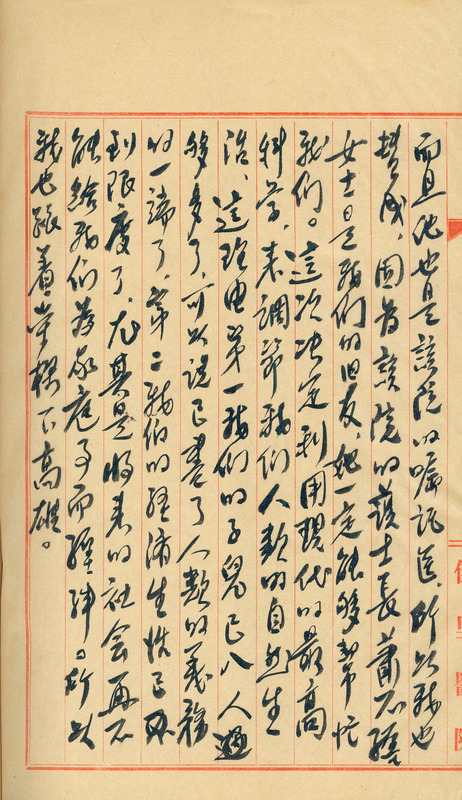 而且他也是該院的囑託医，所以我也
贊成，因為該院的護士長蕭不纏
女士是我們的旧友，她一定能够幫忙
我們。這次决定利用現代的最高
科学，来調節我們人類的自然生
活，這理由第一我們的子兒已八人
够多了，可以說已盡了人類的義務
的一端了，第二我们的經濟生性已
到限度了，尤其是将来的社会再不
能給我們為家庭子而
就也跟着榮樑下高雄。
醫院